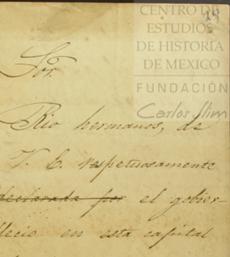 CENTRO DE
ESTUDIOS
DE HISTORIA
DE MEXICO
FUNDACIÓN
Carlos Slim
Sor.
Rio hermanos, de
V. E. respetuosamente
declarada por el gobier-
lecio en esta capital